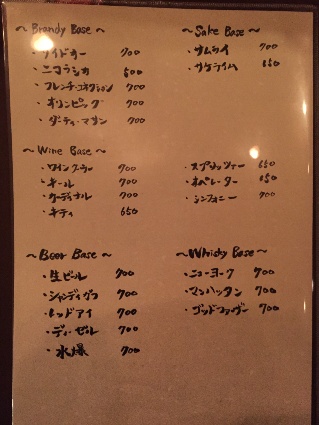 ~ Brandy Base ~
・サイドカー 700
・ニコラシカ 600
・フレンチ・コネクション 700
・オリンピック 700
・ダーティ・マザー 700
~ Sake Base ~
・サムライ 700
・サケライム 650
~ Wine Base ~
・ワインクーラー 700
・キール 700
・カーディナル 700
・キティ 650
・スプリッツァー 650
・オペレーター 650
・シンフォニー 700
~ Beer Base ~
・生ビール 700
・シャンディガフ 700
・レッドアイ 700
・ディーゼル 700
・水爆 700
~ Whisky Base ~
・ニューヨーク 700
・マンハッタン 700
・ゴッドファーザー 700